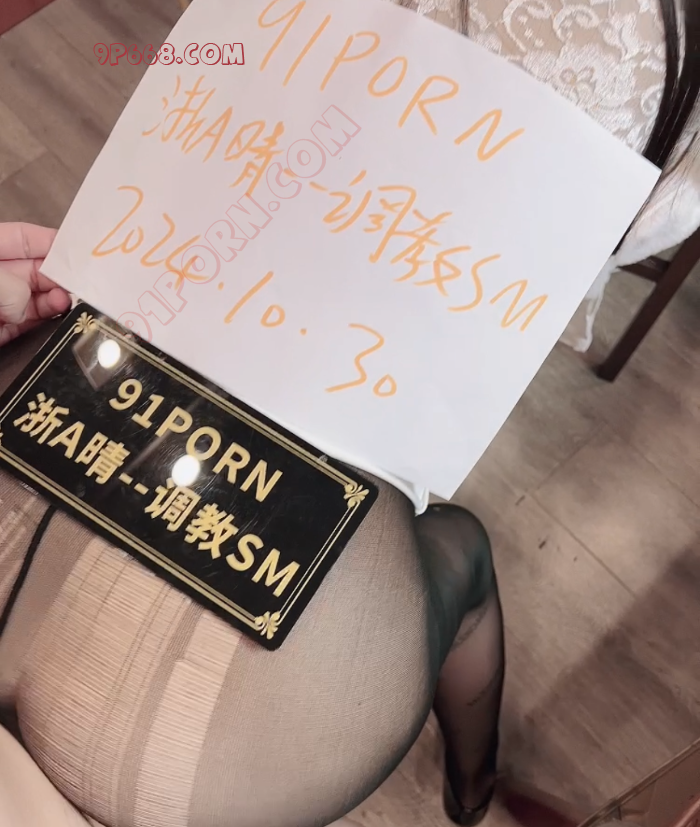 9P668.COM
91PORN
浙A晴--调教SM
2024.10.30
91PORN.COM
91PORN
浙A晴--调教SM